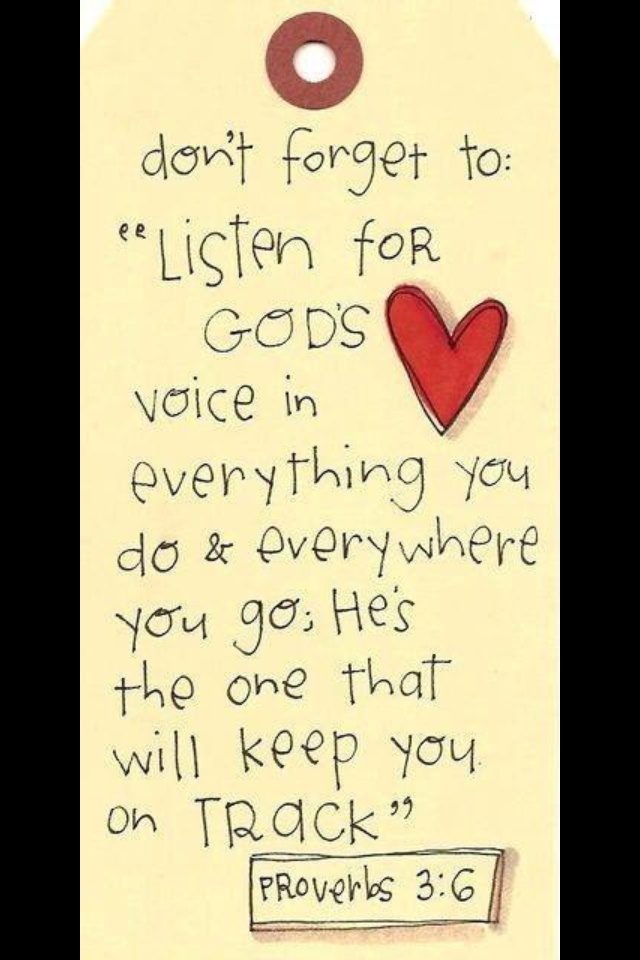 don't forget to:
"Listen foR
GOD'S
voice in
everything you
do & everywhere
you go; He's
the one that
will keep you
on TRaCK"
PRoverbs 3:6